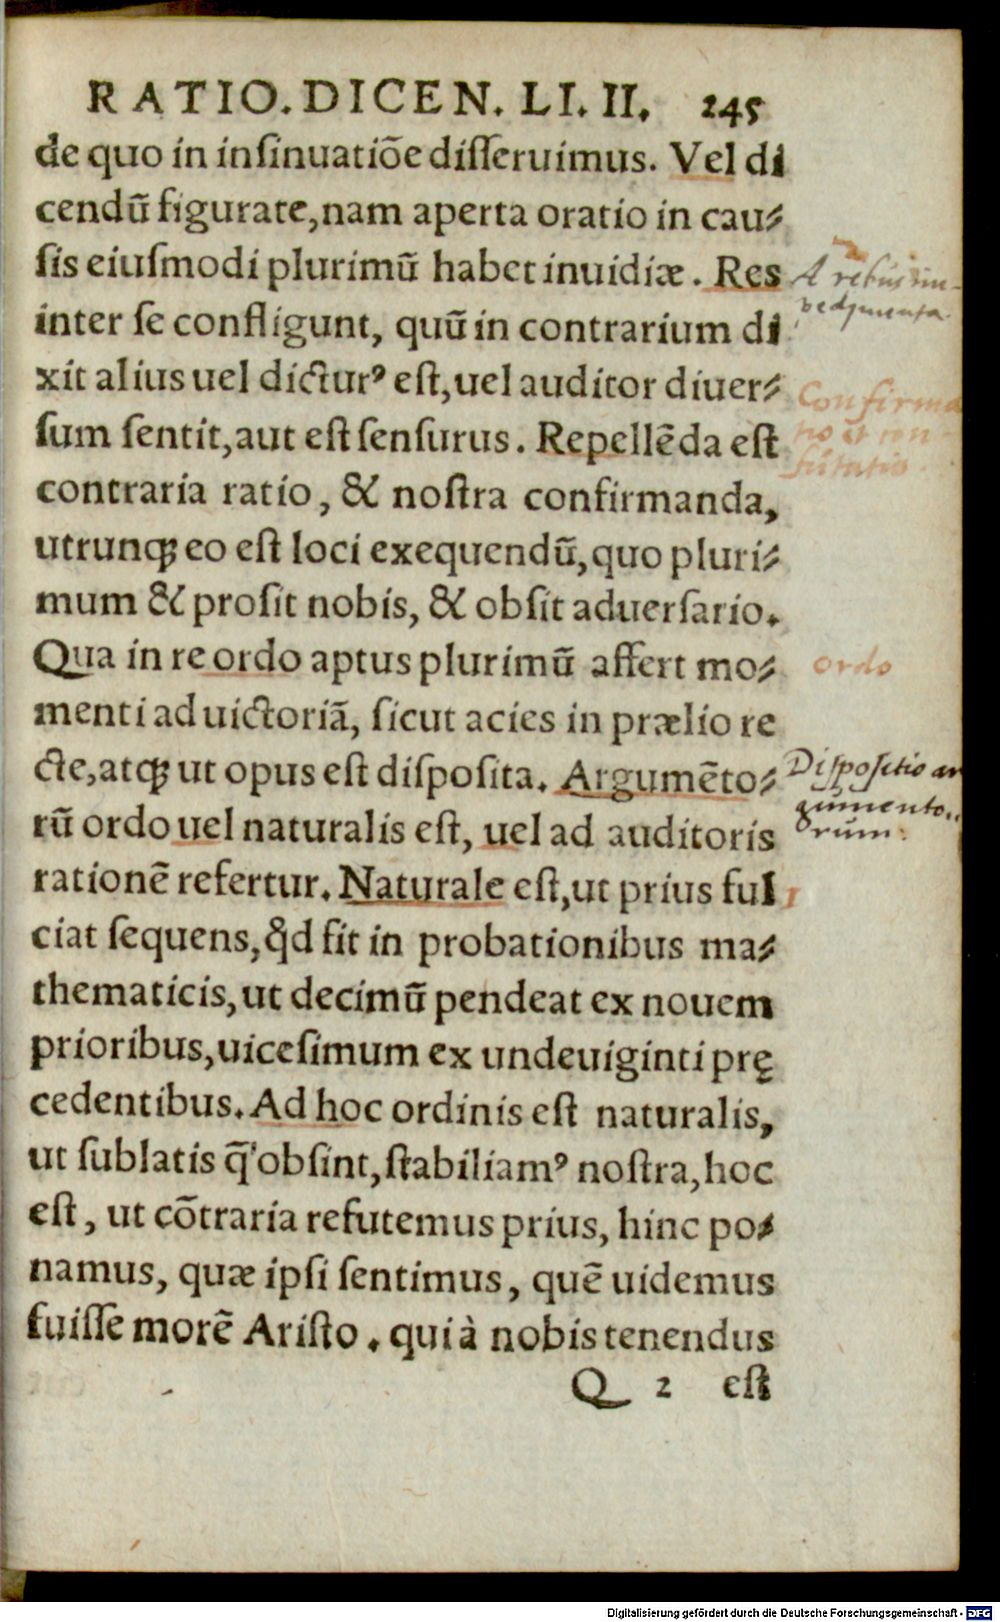 RATIO. DICEN. LI. II. 245
de quo in inſinuatiõe diſſeruimus. Vel di
cendũ figurate, nam aperta oratio in cau⸗
ſis eiuſmodi plurimũ habet inuidiæ. Res
A rebus im-
pedimenta.
inter ſe confligunt, quũ in contrarium di
xit alius uel dicturꝰ eſt, uel auditor diuer⸗
Confirma
tio et con-
futatio.
ſum ſentit, aut eſt ſenſurus. Repellẽda eſt
contraria ratio, & noſtra confirmanda,
utrunqꝫ eo eſt loci exequendũ, quo pluri⸗
mum & proſit nobis, & obſit aduerſario.
Qua in re ordo aptus plurimũ affert mo⸗
ordo
menti ad uictoriã, ſicut acies in prælio re
cte, atqꝫ ut opus eſt diſpoſita. Argumẽto⸗
Diſpoſitio ar
gumento..
rum.
rũ ordo uel naturalis eſt, uel ad auditoris
rationẽ refertur. Naturale eſt, ut prius ful
1
ciat ſequens, ꝙd fit in probationibus ma⸗
thematicis, ut decimũ pendeat ex nouem
prioribus, uiceſimum ex undeuiginti prę
cedentibus. Ad hoc ordinis eſt naturalis,
ut ſublatis q̃ obſint, ſtabiliamꝰ noſtra, hoc
eſt, ut cõtraria refutemus prius, hinc po⸗
namus, quæ ipſi ſentimus, quẽ uidemus
fuiſſe morẽ Ariſto. qui à nobis tenendus
Q 2 eſt
Digitalisierung gefördert durch die Deutsche Forschungsgemeinschaft - DFG